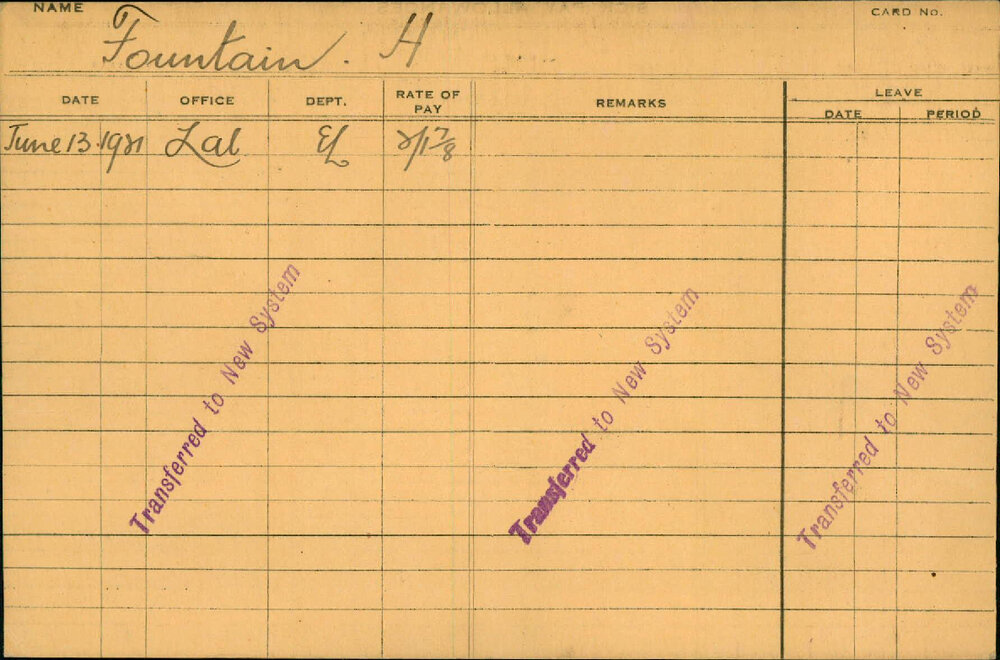 NAME
Fountain. H
CARD NO.
DATE OFFICE DEPT. RATE OF PAY REMARKS LEAVE
DATE PERIOD
June 13. 1921 Lab EL 2/1 7/8
Transferred to New System
Transferred to New System
Transferred to New System